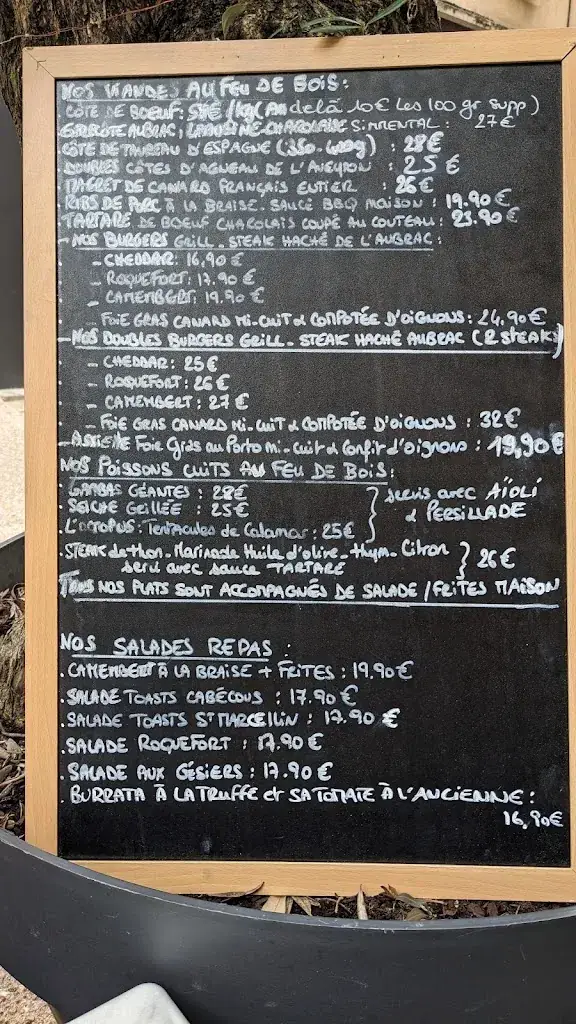 NOS VIANDES AU FEU DE BOIS:
CÔTE DE BOEUF: /kg (Au delà 10€ Les 100 gr supp)
AUBRAC, SIMMENTAL: 27€
CÔTE DE TAUREAU D'ESPAGNE (350-400g): 28€
DOUBLES CÔTES D'AGNEAU DE L'AVEYRON : 25€
MAGRET DE CANARD FRANÇAIS ENTIER : 26€
RIBS DE PORC À LA BRAISE. SAUCE BBQ MAISON: 19.90€
TARTARE DE BOEUF CHAROLAIS COUPÉ AU COUTEAU: 23.90€
- NOS BURGERS GRILL. STEAK HACHÉ DE L'AUBRAC:
- CHEDDAR: 16,90€
- ROQUEFORT: 17.90€
- CAMEMBERT: 19.90€
FOIE GRAS CANARD MI-CUIT & COMPOTÉE D'OIGNONS: 24,90€
- NOS DOUBLES BURGERS GRILL. STEAK HACHÉ AUBRAC (2 STEAKS)
- CHEDDAR: 25€
- ROQUEFORT: 26€
- CAMEMBERT: 27€
- FOIE GRAS CANARD MI-CUIT & COMPOTÉE D'OIGNONS: 32€
- ASSIETTE Foie Gras au Porto mi-cuit & Confit d'oignons: 19,90€
NOS POISSONS CUITS AU FEU DE BOIS:
. GAMBAS GÉANTES: 28€
. SEICHE GRILLÉE: 25€
servis avec AÏOLI
& PERSILLADE
. L'OCTOPUS: Tentacules de Calamar: 25€
. STEAK de thon. Marinade Huile d'olive. thym. Citron
servi avec sauce TARTARE
26€
TOUS NOS PLATS SONT ACCOMPAGNÉS DE SALADE / FRITES MAISON
NOS SALADES REPAS:
. CAMEMBERT À LA BRAISE + FRITES: 19.90€
. SALADE TOASTS CABÉCOUS: 17.90€
. SALADE TOASTS ST MARCELLIN: 17.90€
. SALADE ROQUEFORT: 17.90€
. SALADE AUX GÉSIERS: 17.90€
. BURRATA À LA TRUFFE et SA TOMATE À L'ANCIENNE:
16,90€